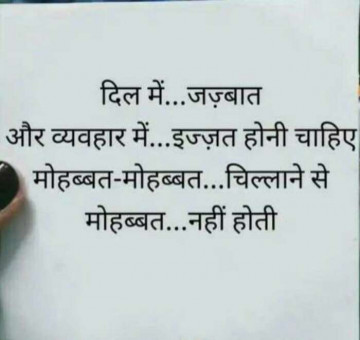 दिल में...जज़्बात
और व्यवहार में...इज्ज़त होनी चाहिए
मोहब्बत-मोहब्बत...चिल्लाने से
मोहब्बत...नहीं होती